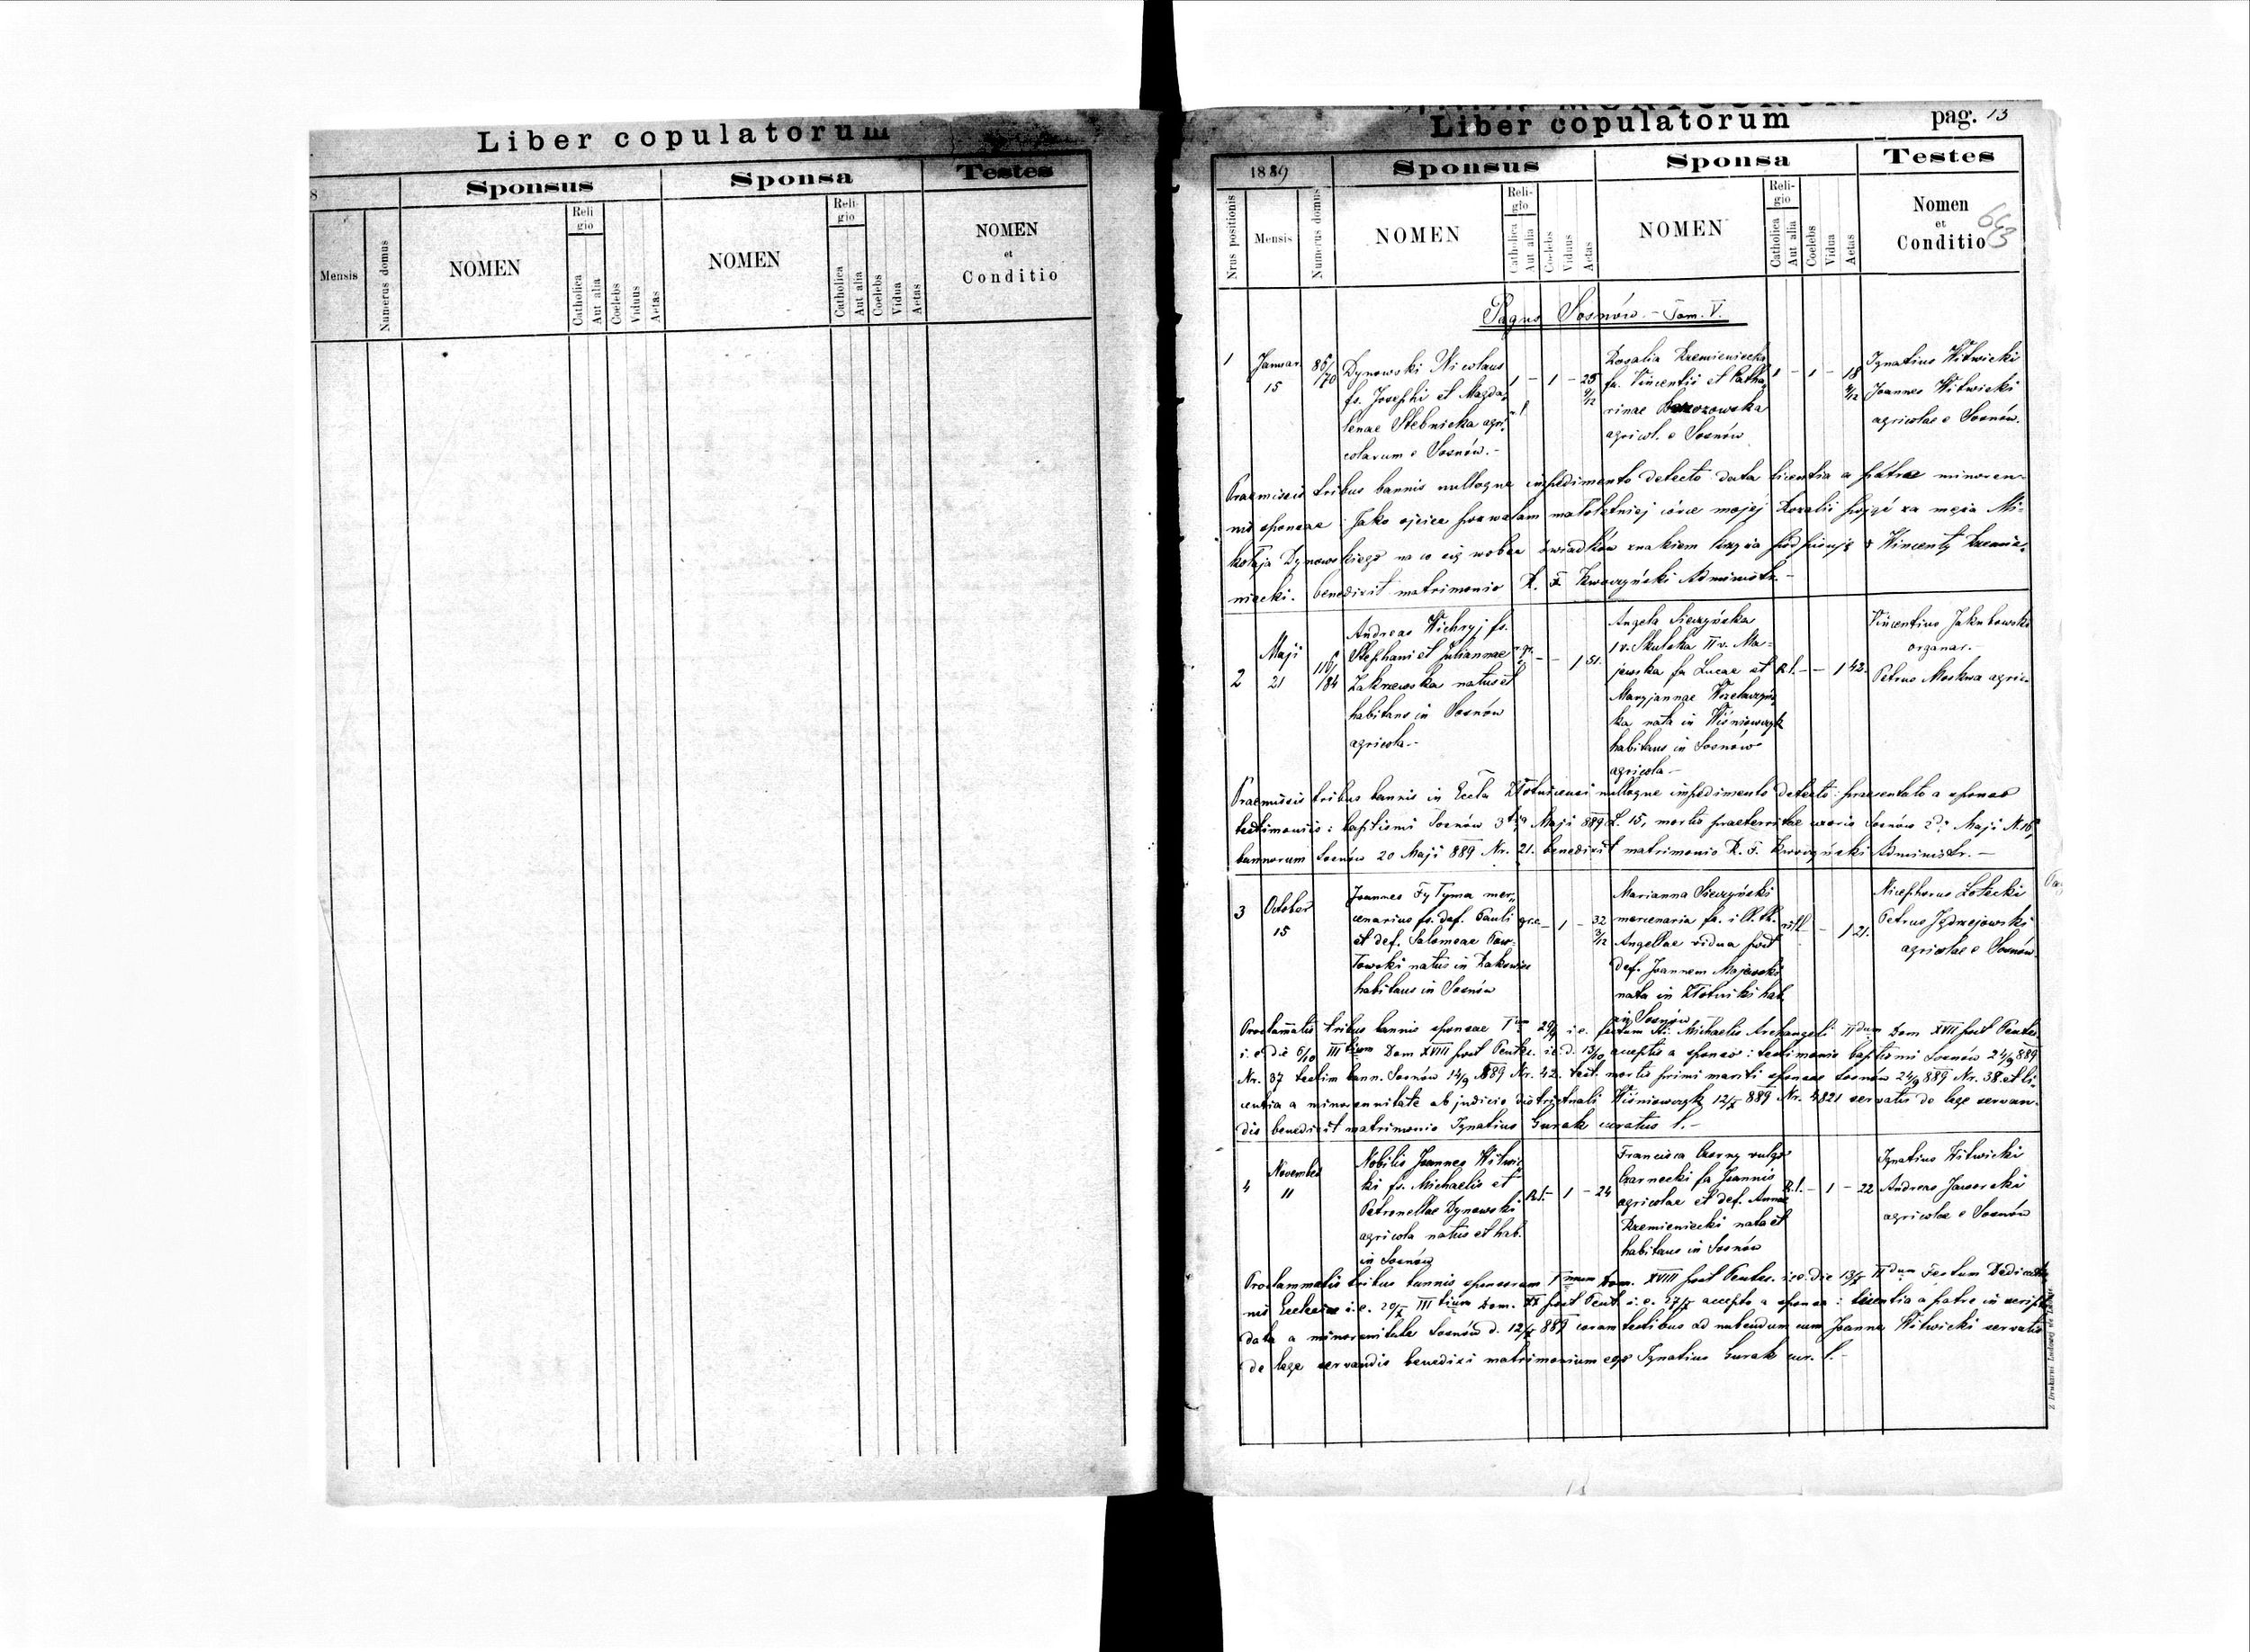 Liber copulatorum
8
Sponsus
Sponsa
Testes
Mensis
Numerus domus
NOMEN
Reli
gio
Catholica
Aut alia
Coelebs
Viduus
Aetas
NOMEN
Reli-
gio
Catholica
Aut alia
Coelebs
Vidua
Aetas
NOMEN
et
Conditio
Liber copulatorum
pag. 13
1889
Sponsus
Sponsa
Testes
Nrus positionis
Mensis
Numerus domus
NOMEN
Reli-
gio
Catholica
Aut alia
Coelebs
Viduus
Aetas
NOMEN
Reli-
gio
Catholica
Aut alia
Coelebs
Vidua
Aetas
Nomen
et
Conditio
663
Pagus Sosnów. - Tom. V.
1
Januar.
15
85/
170
Dynowski Nicolaus
fs. Josephi et Magda-
lenae Stebnicka agri-
colarum e Sosnów. -
1 - 1 - 25
9/12
Rosalia Krzemieniecka
fa. Vincentii et Catha-
rinae
agricol. e Sosnów
1 - 1 - 18
4/12
Ignatius Witwicki
Joannes Witwicki
agricolae e Sosnów.
Praemissis tribus bannis nulloque impedimento detecto data licentia a patre minoren-
nis sponsae: Jako ojciec pozwalam małoletniej córce mojej Rozalii pojąć za męża Mi-
kołaja Dynowskiego na co się wobec świadków znakiem krzyża podpisuję + Wincenty Krzemie-
niecki. benedixit matrimonio R. F. Administr. -
2
Maji
21
116/
184
Andreas Wichryj fs.
Stephani et Juliannae
Zakrzewska natus et
habitans in Sosnów
agricola. -
gr. - - 1 51.
Angela Sieczyńska
1 v. Skulska II v. Ma-
jewska fa Lucae et
Maryjannae
ka nata in Wiśniowczyk
habitans in Sosnów
agricola -
R. l. - - 1 42.
Vincentius Jakubowski
organar. -
Petrus Moskwa agric.
Praemissis tribus bannis in Eccla Złotnicensi nulloque impedimento detecto: praesentato a sponso
testimoniis: baptismi Sosnów 3tia Maji 889 L. 15, mortis praeteritae uxoris Sosnów 2da Maji N. 16,
bannorum Sosnów 20 Maji 889 Nr. 21. benedixit matrimonio R. F. Administr. -
3
October
15
Joannes Fy Tyma mer-
cenarius fs. def. Pauli
et def. Salomeae Paw-
łowski natus in Rakowiec
habitans in Sosnów
gr.c. - 1 - 32
3/12
Marianna Sieczyński
mercenaria fa. ill. th.
Angellae vidua post
def. Joannem Majewski
nata in Złotniki hab.
in Sosnów
rit l. - - 1 21.
Nicephorus Łotecki
Petrus Jędrzejowski
agricolae e Sosnów
Proclamatis tribus bannis sponsae Imum 29/9 i.e. festum St. Michaelis Archangeli IIdum Dom XVII post Pentec.
i.e die 6/10 IIItium Dom XVIII post Pentec. i.e. d. 13/10, acceptis a sponso: testimonio baptismi Sosnów 24/9 889
Nr. 37 testim bann. Sosnów 14/9 889 Nr. 42. test. mortis primi mariti sponsae Sosnów 24/9 889 Nr. 38. et li-
centia a minorennitate ab judicio districtuali Wiśniowczyk 12/X 889 Nr. 4821 servatis de lege servan-
dis benedixit matrimonio Ignatius Gurak curatus l. -
4
November
11
Nobilis Joannes Witwic-
ki fs. Michaelis et
Petronellae Dynowski
agricola natus et hab.
in Sosnów
R. l. - 1 - 24
Francisca Czorny vulgo
Czarnecki fa Joannis
agricolae et def. Annae
Krzemieniecki nata et
habitans in Sosnów
R. l. - 1 - 22
Ignatius Witwicki
Andreas Jaworski
agricolae e Sosnów
Proclammatis tribus bannis sponsorum Imum Dom. XVIII post Pentec. i.e. die 13/X IIdum Festum Dedicatio-
nis Ecclesiae i.e. 20/X IIItium Dom. XX post Pent. i.e. 27/X accepto a sponsa: licentia a patre in script
data a minorennitate Sosnów d. 12/X 889 coram testibus ad nubendum cum Joanne Witwicki servatis
de lege servandis benedixi matrimonium ego Ignatius Gurak cur. l. -
Z Drukarni Ludowej we Lwowie